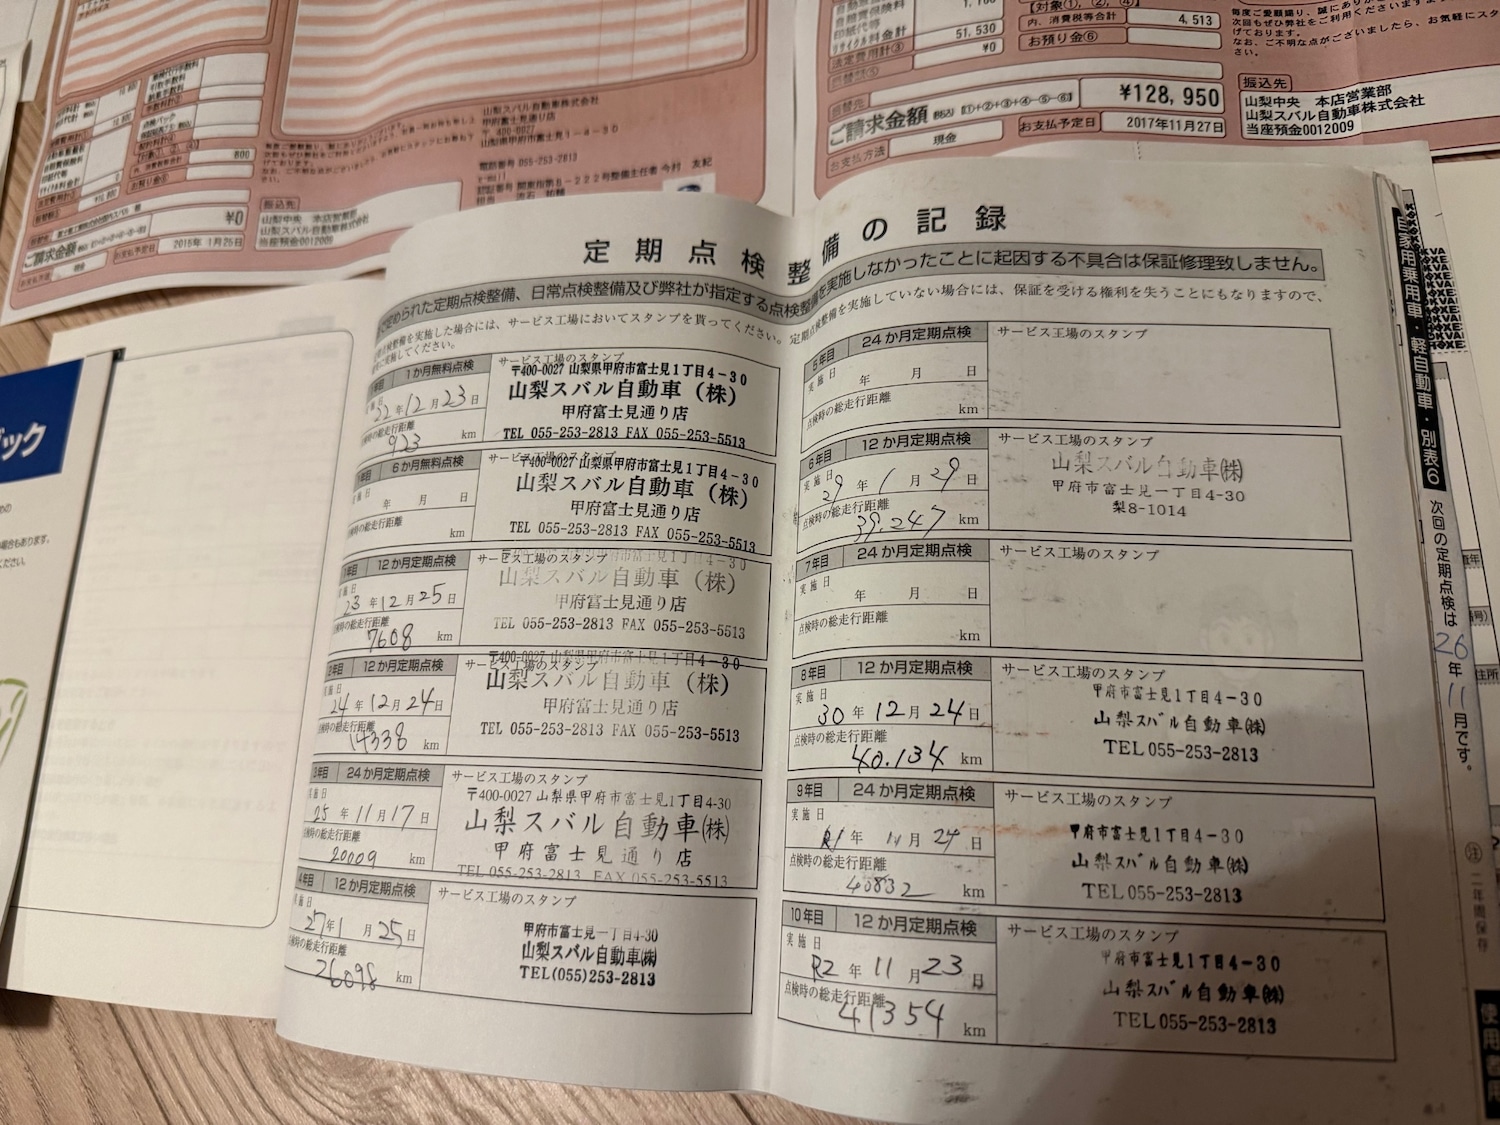 山梨スバル自動車株式会社
甲府富士見通り店
〒 400-0027
山梨県甲府市富士見1-4-30
電話番号 055-253-2813
e-mail
認証番号 関東指第8-222号整備主任者 今村 友紀
振込先
山梨中央 本店営業部
山梨スバル自動車株式会社
当座預金0012009
800
¥0
ご請求金額
お支払予定日 2015年 1月25日
現金
リサイクル料金計
印紙代等
51,530
法定費用計③
¥0
内、消費税等合計
4,513
お預り金⑥
ご請求金額 税込 (①+②+③+④-⑤-⑥)
¥128,950
お支払方法
現金
お支払予定日
2017年11月27日
なお、ご不明な点がございましたら、お気軽にスタ
振込先
山梨中央 本店営業部
山梨スバル自動車株式会社
当座預金0012009
ック
定期点検整備の記録
められた定期点検整備、日常点検整備及び弊社が指定する点検整備を実施しなかったことに起因する不具合は保証修理致しません。
を実施した場合には、サービス工場においてスタンプを貰ってください。定期点検整備を実施していない場合には、保証を受ける権利を失うことにもなりますので、
に実施してください。
1か月無料点検
サービス工場のスタンプ
12月23日
点検時の総走行距離
923 km
〒400-0027 山梨県甲府市富士見1丁目4-30
山梨スバル自動車(株)
甲府富士見通り店
TEL 055-253-2813 FAX 055-253-5513
6か月無料点検
サービス工場のスタンプ
実施日
年 月 日
点検時の総走行距離
km
〒400-0027 山梨県甲府市富士見1丁目4-30
山梨スバル自動車(株)
甲府富士見通り店
TEL 055-253-2813 FAX 055-253-5513
1年目 12か月定期点検
サービス工場のスタンプ
実施日
23年12月25日
点検時の総走行距離
7608 km
山梨スバル自動車(株)
甲府富士見通り店
TEL 055-253-2813 FAX 055-253-5513
2年目 12か月定期点検
サービス工場のスタンプ
実施日
24年12月24日
点検時の総走行距離
14338 km
〒400-0027 山梨県甲府市富士見1丁目4-30
山梨スバル自動車(株)
甲府富士見通り店
TEL 055-253-2813 FAX 055-253-5513
3年目 24か月定期点検
サービス工場のスタンプ
実施日
25年11月17日
点検時の総走行距離
20009 km
〒400-0027 山梨県甲府市富士見1丁目4-30
山梨スバル自動車(株)
甲府富士見通り店
TEL 055-253-2813 FAX 055-253-5513
4年目 12か月定期点検
サービス工場のスタンプ
実施日
27年1月25日
点検時の総走行距離
26098 km
甲府市富士見一丁目4-30
山梨スバル自動車(株)
TEL(055)253-2813
5年目 24か月定期点検
サービス工場のスタンプ
実施日
年 月 日
点検時の総走行距離
km
6年目 12か月定期点検
サービス工場のスタンプ
実施日
29年1月29日
点検時の総走行距離
39,247 km
山梨スバル自動車(株)
甲府市富士見一丁目4-30
梨8-1014
7年目 24か月定期点検
サービス工場のスタンプ
実施日
年 月 日
点検時の総走行距離
km
8年目 12か月定期点検
サービス工場のスタンプ
実施日
30年12月24日
点検時の総走行距離
40.134 km
甲府市富士見1丁目4-30
山梨スバル自動車(株)
TEL 055-253-2813
9年目 24か月定期点検
サービス工場のスタンプ
実施日
R1年11月24日
点検時の総走行距離
40832 km
甲府市富士見1丁目4-30
山梨スバル自動車(株)
TEL 055-253-2813
10年目 12か月定期点検
サービス工場のスタンプ
実施日
R2年11月23日
点検時の総走行距離
41354 km
甲府市富士見1丁目4-30
山梨スバル自動車(株)
TEL 055-253-2813
自家用乗用車・軽自動車・別表6
次回の定期点検は26年11月です。
注 二年間保存
使用者